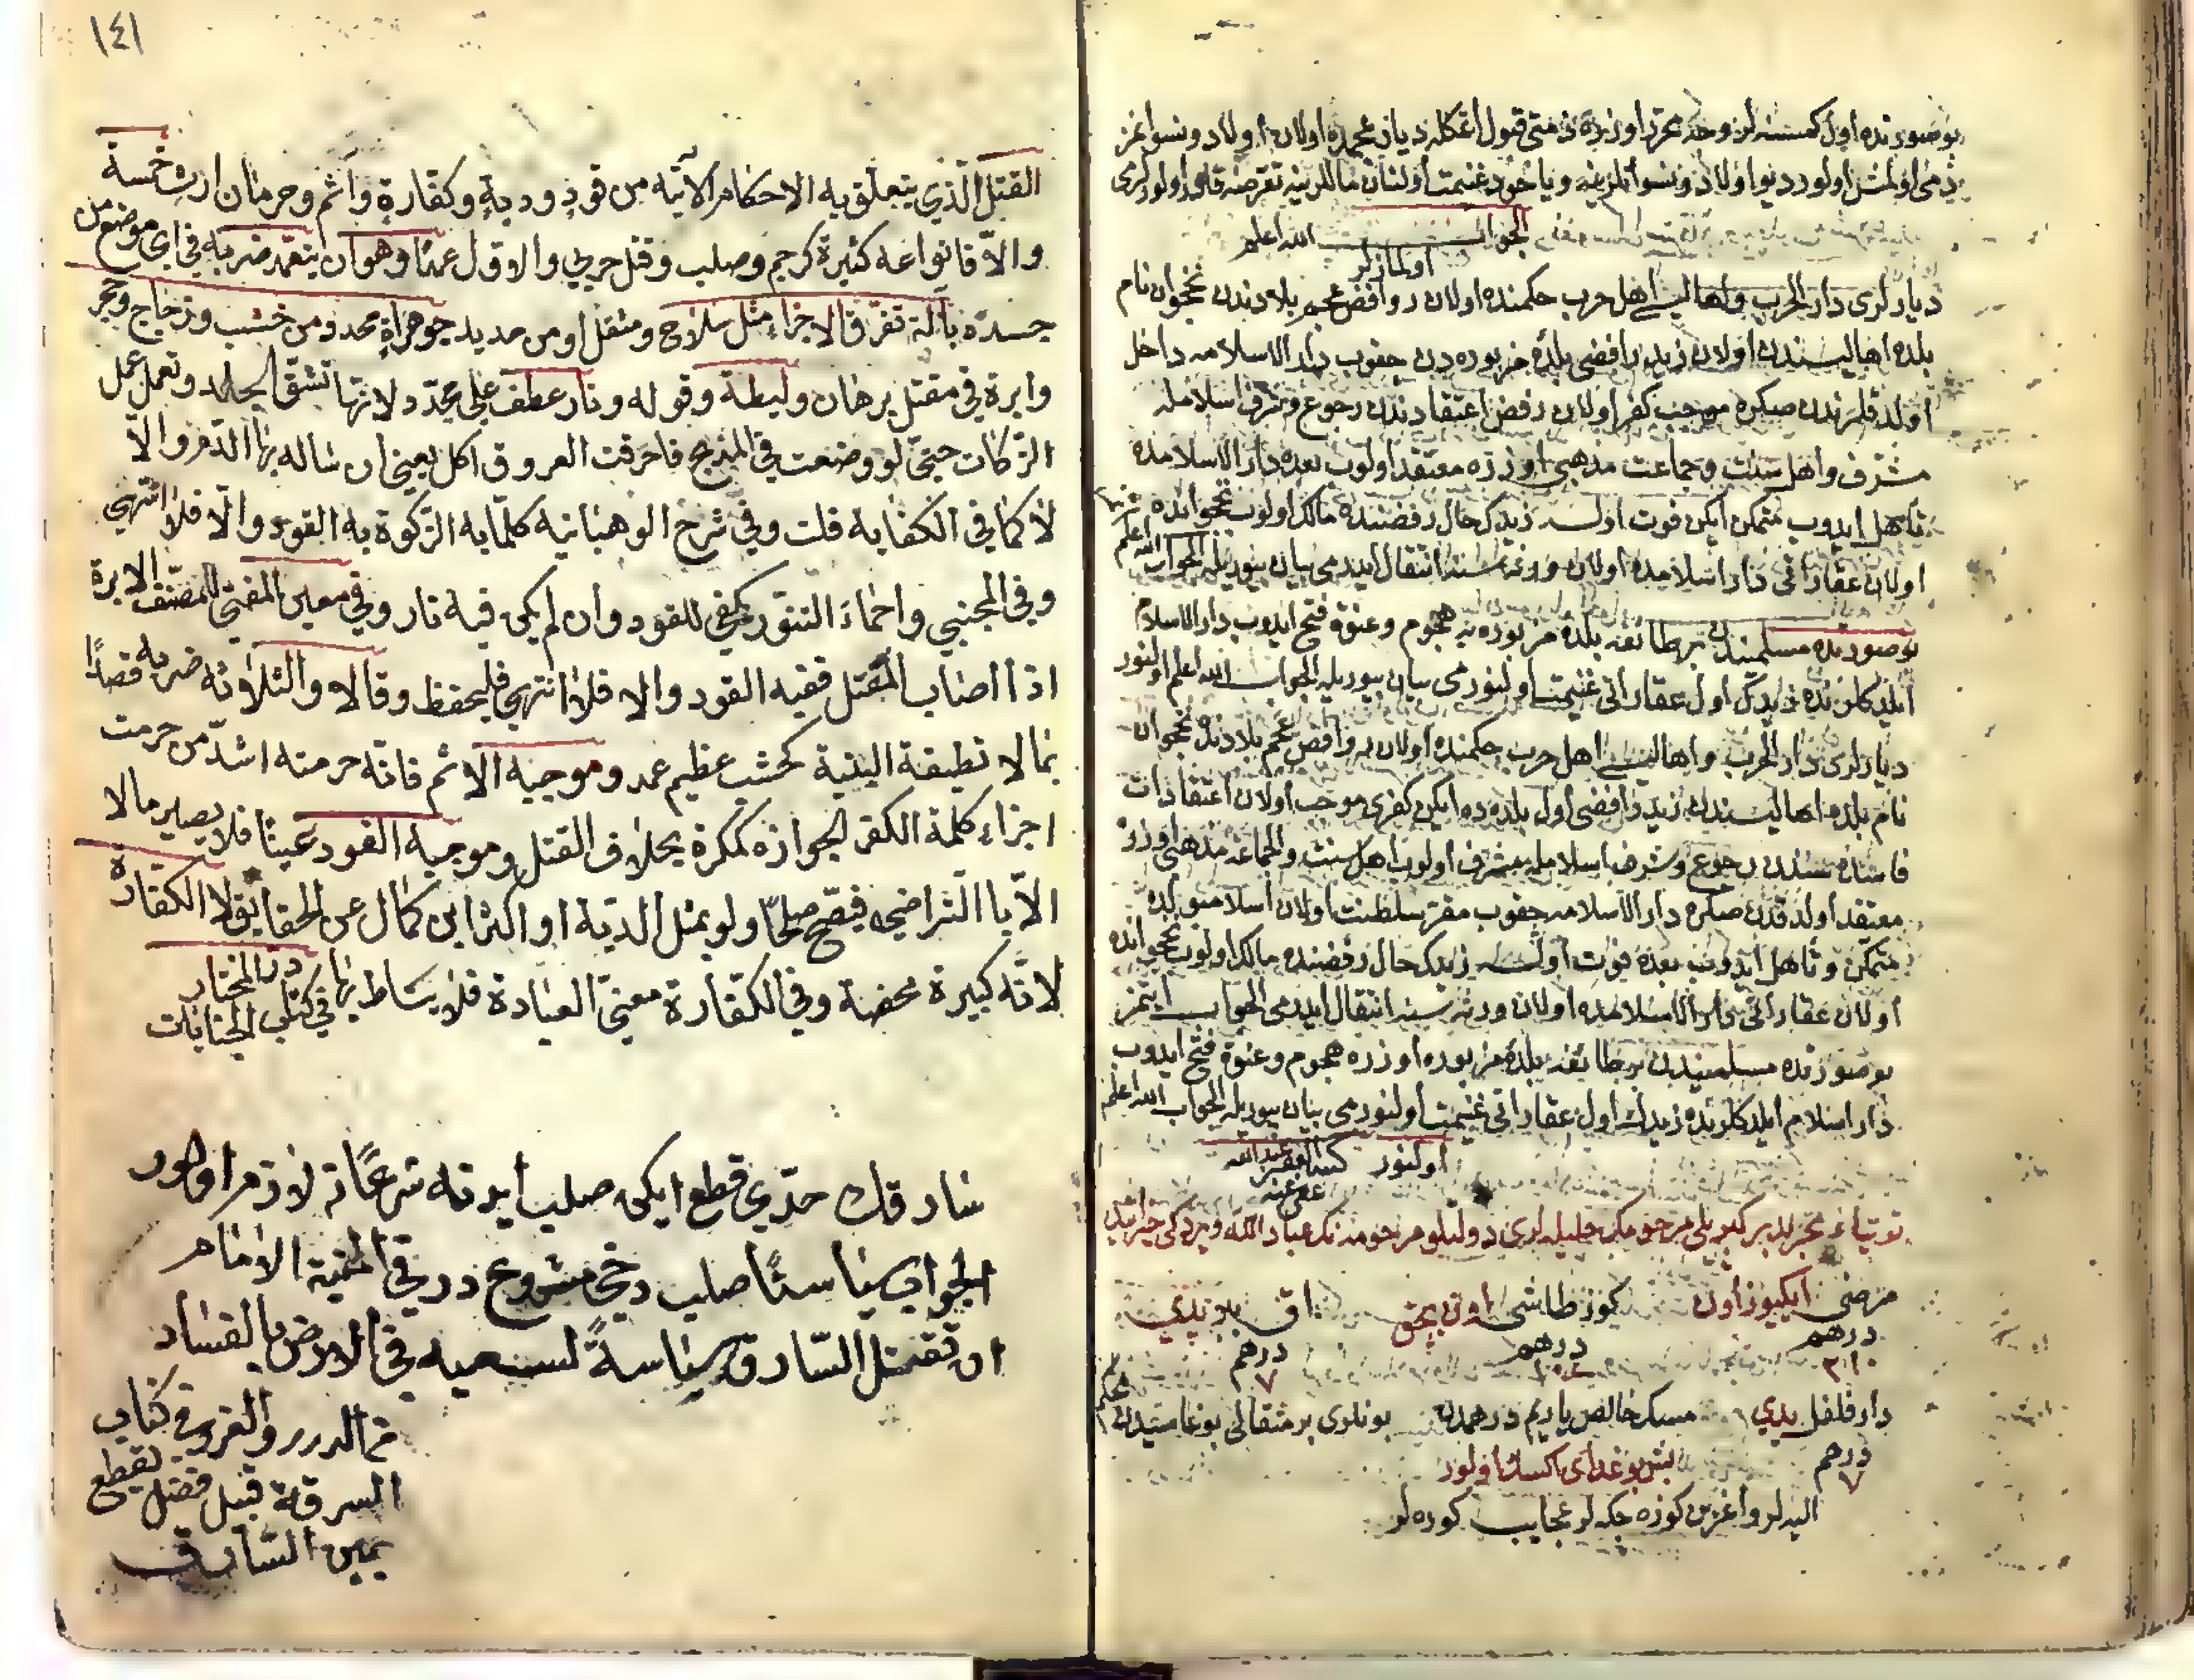 بوصورتده اول كمسنه لر وجه محرر اوزره ذمتي قبول اتمكله ديار عجمده اولان اولاد ونسوانمز
ذمى اولمش اولور ديو اولاد ونسوانلرينه وياخود غنيمت اولنان ماللرينه تعرضه قادر اولورلرمى
الجواب الله اعلم
اولمازلر
ديارلرى دار الحرب واهاليسى اهل حرب حكمنده اولان روافض عجم بلادندن نخجوان نام
بلده اهاليسندن اولان زيد رافضى بلدهٔ مزبوره دن چقوب دار الاسلامه داخل
اولدقلرندن صكره موجب كفر اولان رفض اعتقادندن رجوع وشرف اسلامله
مشرف واهل سنت وجماعت مذهبى اوزره معتقد اولوب بعده دار الاسلامده
تأهل ايدوب متمكن ايكن فوت اولسه زيدك حال رفضنده مالك اولوب نخجوانده
اولان عقاراتى دار اسلامده اولان ورثه سنه انتقال ايدرمى بيان بيوريله الجواب الله اعلم
بوصورتده مسلميندن بر طائفه بلدهٔ مزبوره يه هجوم وعنوة فتح ايدوب دار الاسلام
ايلدكلرنده زيدك اول عقاراتى غنيمت اولنورمى بيان بيوريله الجواب الله اعلم اولنور
ديارلرى دار الحرب واهاليسى اهل حرب حكمنده اولان روافض عجم بلادندن نخجوان
نام بلده اهاليسندن زيد رافضى اول بلده ده ايكن كفرى موجب اولان اعتقادات
فاسده سندن رجوع وشرف اسلامله مشرف اولوب اهل سنت والجماعة مذهبى اوزره
معتقد اولدقدن صكره دار الاسلامه چقوب مقر سلطنت اولان اسلامبولده
متمكن وتأهل ايدوب بعده فوت اولسه زيدك حال رفضنده مالك اولوب نخجوانده
اولان عقاراتى دار الاسلامده اولان ورثه سنه انتقال ايدرمى الجواب ايتمز
بوصورتده مسلميندن بر طائفه بلدهٔ مزبوره اوزره هجوم وعنوة فتح ايدوب
دار اسلام ايلدكلرنده زيدك اول عقاراتى غنيمت اولنورمى بيان بيوريله الجواب الله اعلم
اولنور كتبه الفقير عبد الله
عفى عنه
مرضى ايكيوز اون كوز طاشى اون بچق اق
درهم درهم درهم
٢١٠ ٧
دار فلفل يدي مسك خالص ياريم درهمدن بونلرى بر مثقالى بوغاستيدن
درهم بش بوغداى اكسك اولور
٧
اليدلر واغزين كوزه چكه لر عجايب كوره لر
١٤١
القتل الذي يتعلق به الاحكام الآتيه من قود ودية وكفارة واثم وحرمان ارث خمسة
والا فانواعه كثيرة كرجم وصلب وقتل حربي والاول عمدا وهو ان يتعمد ضربه في اي موضع من
جسده بآلة تفرق الاجزاء مثل سلاح ومثقل او من حديد جوهرة محدد من خشب وزجاج وحجر
وابرة في مقتل برهان وليطة وقوله ونار عطف على محدد لانها تشق الجلد وتعمل عمل
الزكات حتى لو وضعت في المذبح فاحرقت العروق اكل يعني ان سال بها الدم والا
لا كما في الكفايه قلت وفي شرح الوهبانيه كلما به الزكوة به القود والا فلا انتهى
وفي المجتبي واحماء التنور يكفي للقود وان لم يكن فيه نار وفي معين المفتي للمصنف الابرة
اذا اصاب المقتل ففيه القود والا فلا انتهى فليحفظ وقالا والثلاثة ضربه قصدا
بما لا تطيقه البنية كخشب عظيم عمد وموجبه الاثم فانه حرمته اشد من حرمت
اجزاء كلمة الكفر لجوازه لمكره بخلاف القتل وموجبه القود عينا فلا يصير مالا
الا با التراضي فيصح صلحا ولو بمثل الدية او اكثر ابن كمال عن الحقايق لا الكفارة
لانه كبيرة محضة وفي الكفارة معنى العبادة فلا يناط بها در المختار
في كتاب الجنايات
سارقك حدي قطع ايكن صلب ايدنه شرعا نه لازم اولور
الجواب سياستا صلب دخي مشروع در في المنية الامام
ان تقتل السارق سياسة لسعيه في الارض بالفساد
من الدرر والغرر في كتاب
السرقة قبيل فصل يقطع
يمين السارق